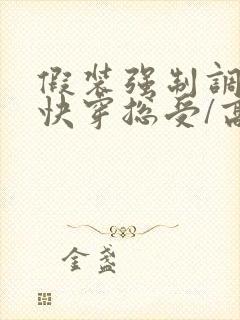 假装强制調
快穿总受/高
金盏